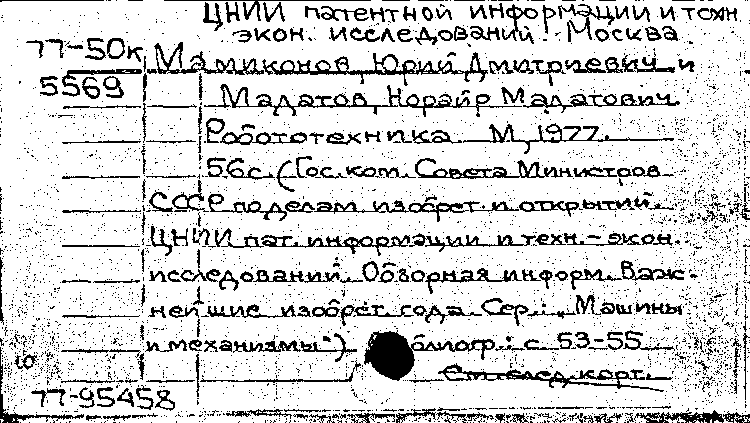 ЦНИИ патентной информации и техн.
экон. исследований. Москва.
77-50к Мамиконов, Юрий Дмитриевич и
5569 Мадатов, Норайр Мадатович.
Робототехника. М., 1977.
56с. (Гос. ком. Совета Министров
СССР по делам изобрет. и открытий.
ЦНИИ пат. информации и техн.-экон.
исследований. Обзорная информ. Важ-
нейшие изобрет. года. Сер.: "Машины
и механизмы") блиогр.: с. 53-55
См. след. карт.
77-95458